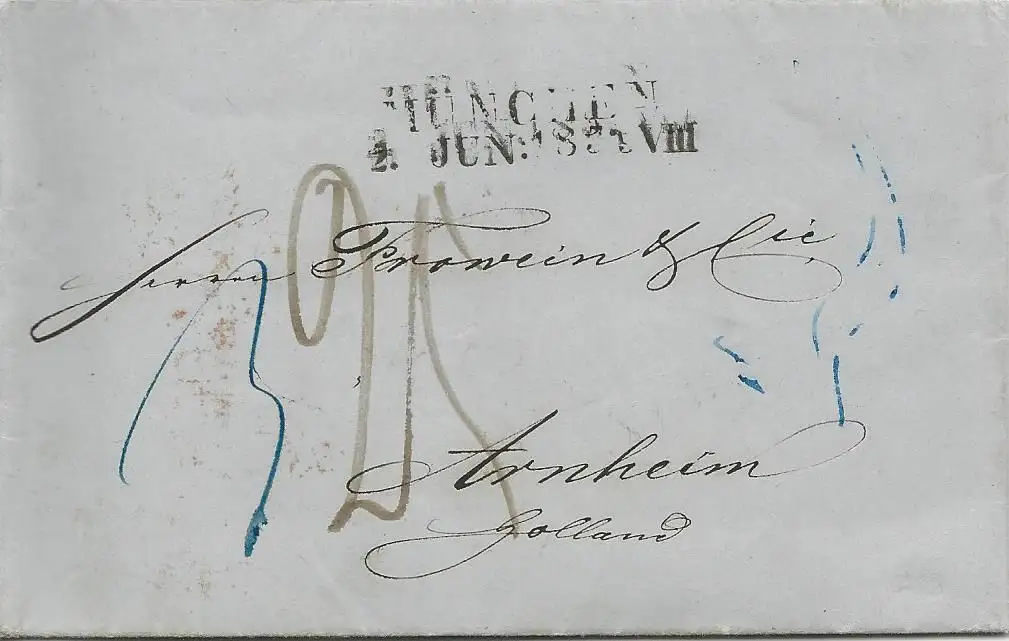 MÜNCHEN
2. JUN: VIII
Herrn Frowein & Cie
Arnheim
Holland